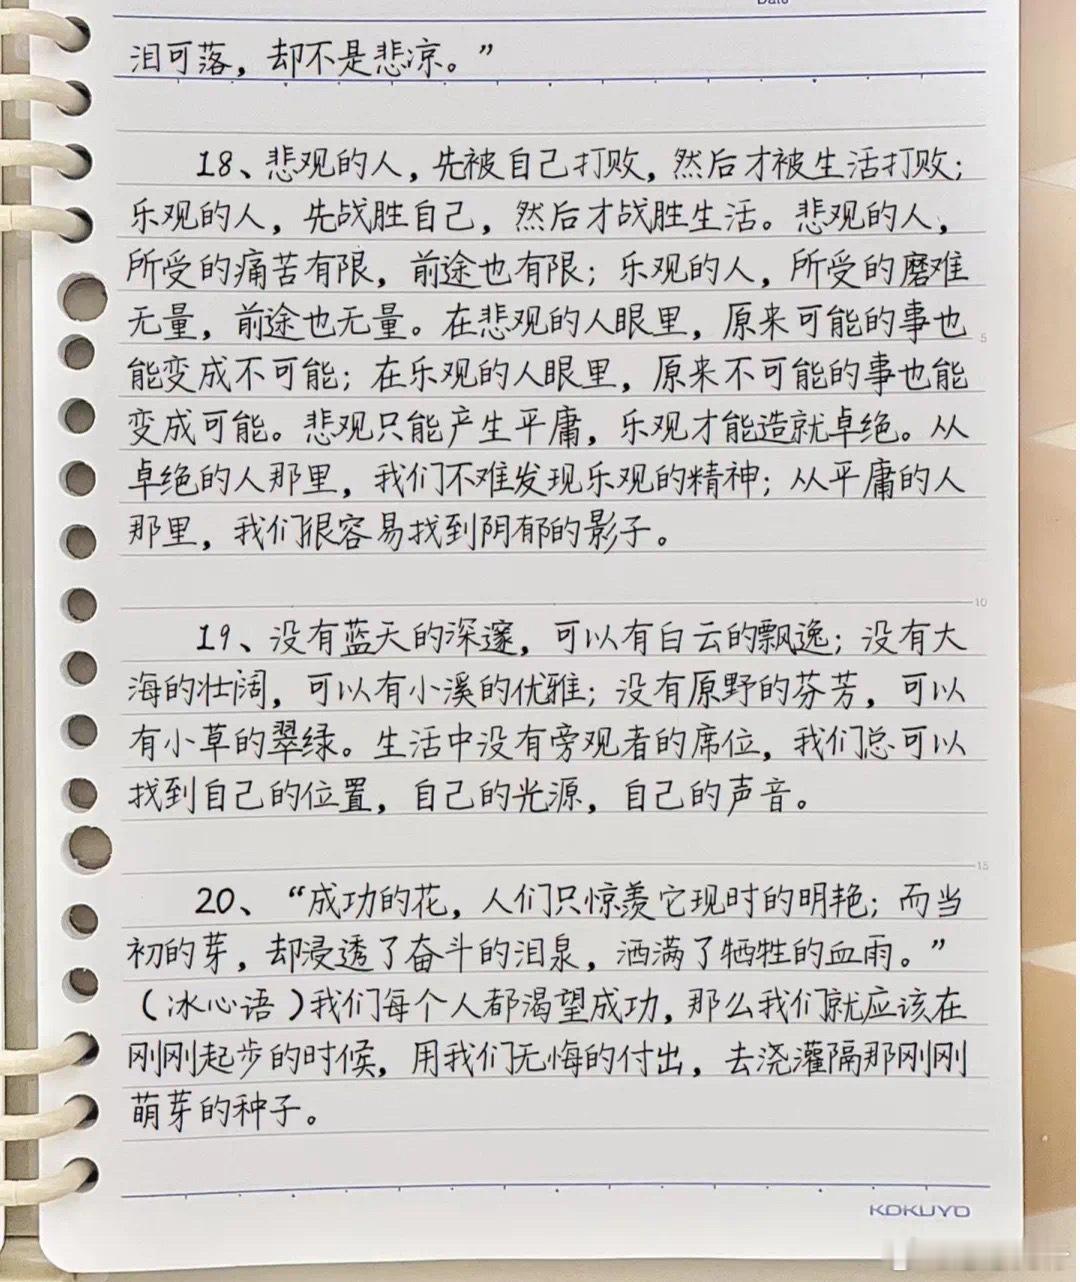 Date
泪可落，却不是悲凉。”
18、悲观的人，先被自己打败，然后才被生活打败；
乐观的人，先战胜自己，然后才战胜生活。悲观的人，
所受的痛苦有限，前途也有限；乐观的人，所受的磨难
无量，前途也无量。在悲观的人眼里，原来可能的事也
能变成不可能；在乐观的人眼里，原来不可能的事也能
变成可能。悲观只能产生平庸，乐观才能造就卓绝。从
卓绝的人那里，我们不难发现乐观的精神；从平庸的人
那里，我们很容易找到阴郁的影子。
19、没有蓝天的深邃，可以有白云的飘逸；没有大
海的壮阔，可以有小溪的优雅；没有原野的芬芳，可以
有小草的翠绿。生活中没有旁观者的席位，我们总可以
找到自己的位置，自己的光源，自己的声音。
20、“成功的花，人们只惊羡它现时的明艳；而当
初的芽，却浸透了奋斗的泪泉，洒满了牺牲的血雨。”
（冰心语）我们每个人都渴望成功，那么我们就应该在
刚刚起步的时候，用我们无悔的付出，去浇灌隔那刚刚
萌芽的种子。
5
10
15
KOKUYO